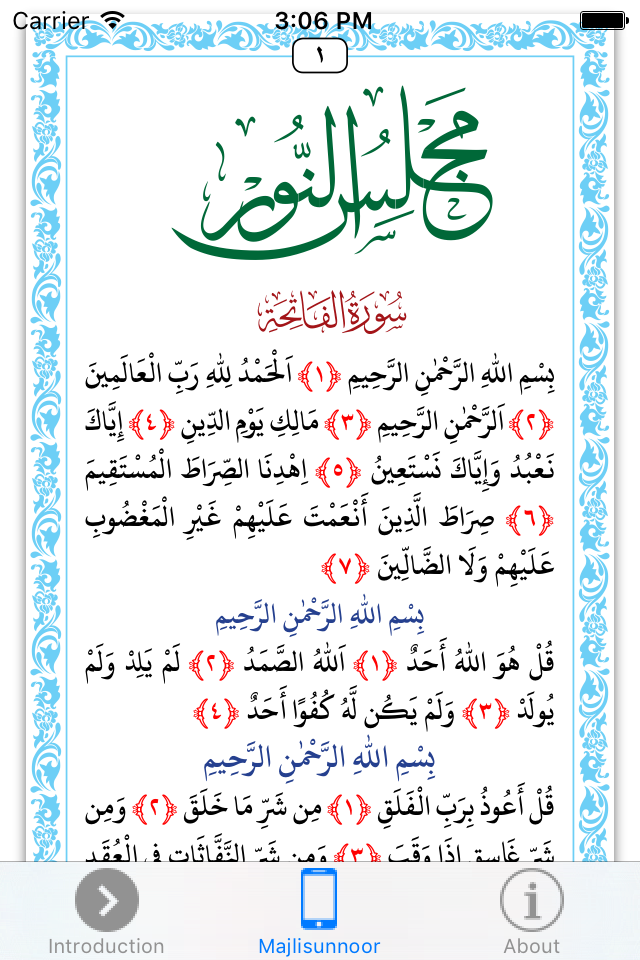 Carrier 3:06 PM
١
مجلس النور
سُورَةُ الفَاتِحَةِ
بِسْمِ اللهِ الرَّحْمٰنِ الرَّحِيمِ ﴿١﴾ اَلْحَمْدُ لِلهِ رَبِّ الْعَالَمِينَ
﴿٢﴾ اَلرَّحْمٰنِ الرَّحِيمِ ﴿٣﴾ مَالِكِ يَوْمِ الدِّينِ ﴿٤﴾ إِيَّاكَ
نَعْبُدُ وَإِيَّاكَ نَسْتَعِينُ ﴿٥﴾ اِهْدِنَا الصِّرَاطَ الْمُسْتَقِيمَ
﴿٦﴾ صِرَاطَ الَّذِينَ أَنْعَمْتَ عَلَيْهِمْ غَيْرِ الْمَغْضُوبِ
عَلَيْهِمْ وَلَا الضَّالِّينَ ﴿٧﴾
بِسْمِ اللهِ الرَّحْمٰنِ الرَّحِيمِ
قُلْ هُوَ اللهُ أَحَدٌ ﴿١﴾ اَللهُ الصَّمَدُ ﴿٢﴾ لَمْ يَلِدْ وَلَمْ
يُولَدْ ﴿٣﴾ وَلَمْ يَكُن لَّهُ كُفُوًا أَحَدٌ ﴿٤﴾
بِسْمِ اللهِ الرَّحْمٰنِ الرَّحِيمِ
قُلْ أَعُوذُ بِرَبِّ الْفَلَقِ ﴿١﴾ مِن شَرِّ مَا خَلَقَ ﴿٢﴾ وَمِن
شَرِّ غَاسِقٍ إِذَا وَقَبَ ﴿٣﴾ وَمِن شَرِّ النَّفَّاثَاتِ فِي الْعُقَدِ
Introduction Majlisunnoor About